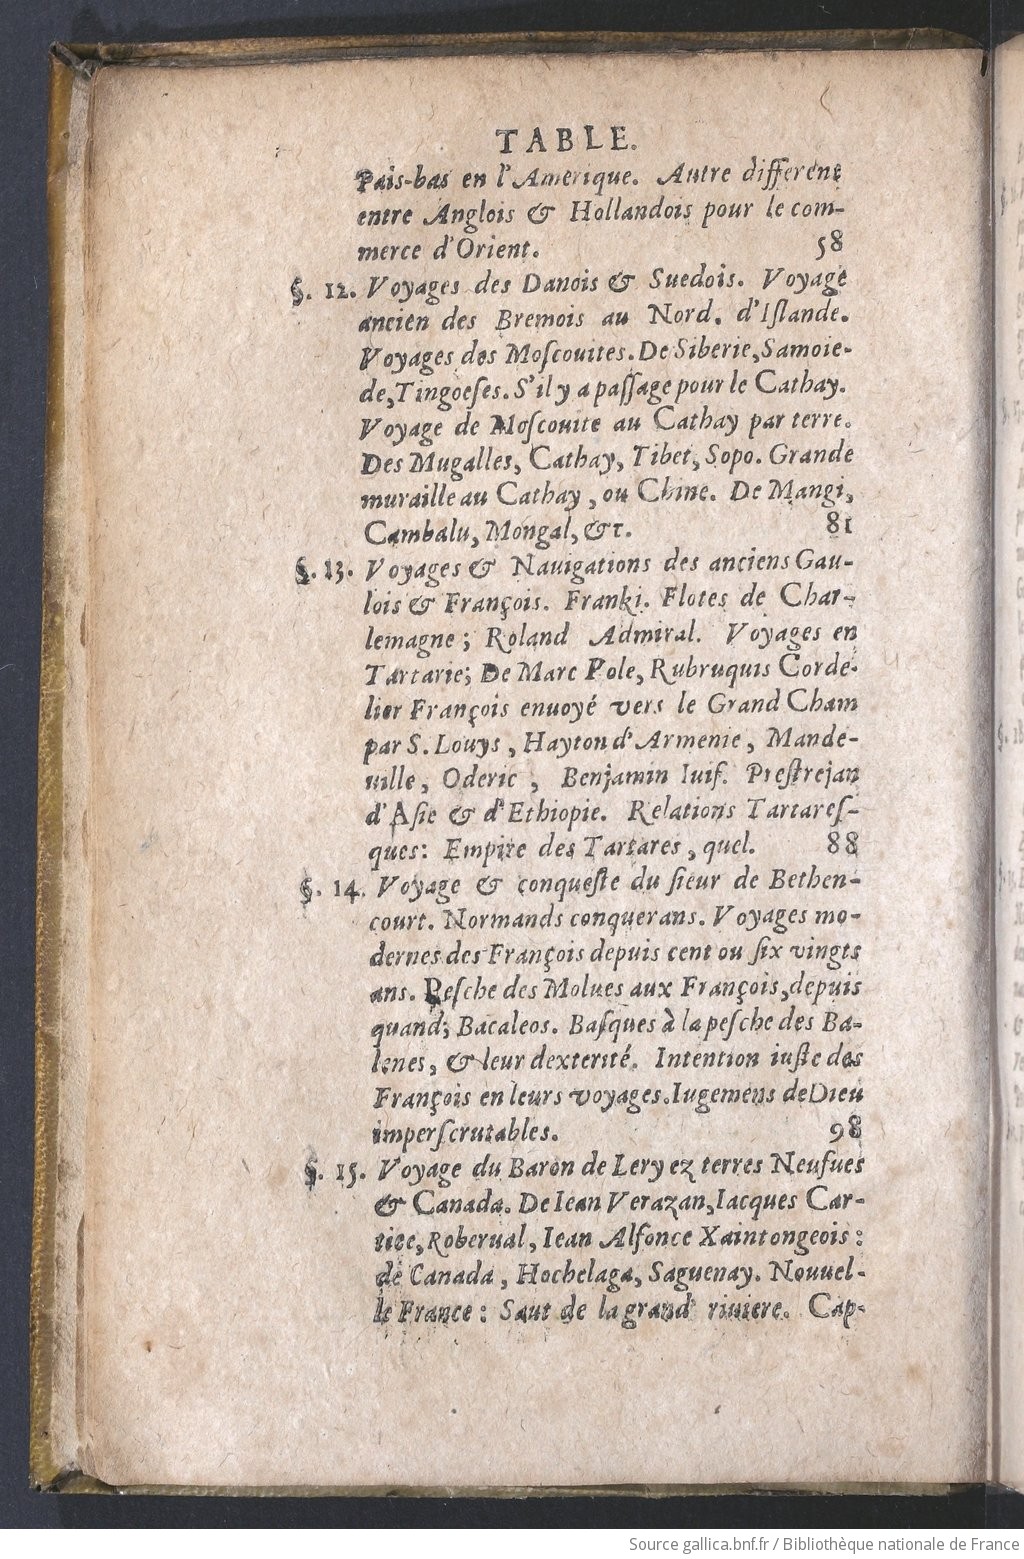 TABLE.
Païs-bas en l'Amerique. Autre different
entre Anglois & Hollandois pour le com-
merce d'Orient. 58
§. 12. Voyages des Danois & Suedois. Voyage
ancien des Bremois au Nord. d'Iſlande.
Voyages des Moſcouites. De Siberie, Samoie-
de, Tingoeſes. S'il y a paſſage pour le Cathay.
Voyage de Moſcouite au Cathay par terre.
Des Mugalles, Cathay, Tibet, Sopo. Grande
muraille au Cathay, ou Chine. De Mangi,
Cambalu, Mongal, &c. 81
§. 13. Voyages & Nauigations des anciens Gau-
lois & François. Franki. Flotes de Char-
lemagne; Roland Admiral. Voyages en
Tartarie; De Marc Pole, Rubruquis Corde-
lier François enuoyé vers le Grand Cham
par S. Louys, Hayton d'Armenie, Mande-
uille, Oderic, Benjamin Iuif. Preſtrejan
d'Aſie & d'Ethiopie. Relations Tartareſ-
ques: Empire des Tartares, quel. 88
§. 14. Voyage & conqueſte du ſieur de Bethen-
court. Normands conquerans. Voyages mo-
dernes des François depuis cent ou ſix vingts
ans. Peſche des Molues aux François, depuis
quand; Bacaleos. Baſques à la peſche des Ba-
lenes, & leur dexterité. Intention iuſte des
François en leurs voyages. Iugemens de Dieu
imperſcrutables. 98
§. 15. Voyage du Baron de Lery ez terres Neufues
& Canada. De Iean Verazan, Iacques Car-
tier, Roberual, Iean Alfonce Xaintongeois:
de Canada, Hochelaga, Saguenay. Nouuel-
le France: Saut de la grand' riuiere. Cap-
Source gallica.bnf.fr / Bibliothèque nationale de France